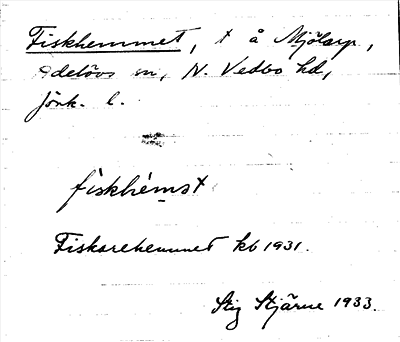 Fiskhemmet, t å Mjölarp,
Adelövs sn, N. Vedbo hd,
Jönk. l.
fiskhèmət
Fiskarehemmet kb 1931.
Stig Stjärne 1933.